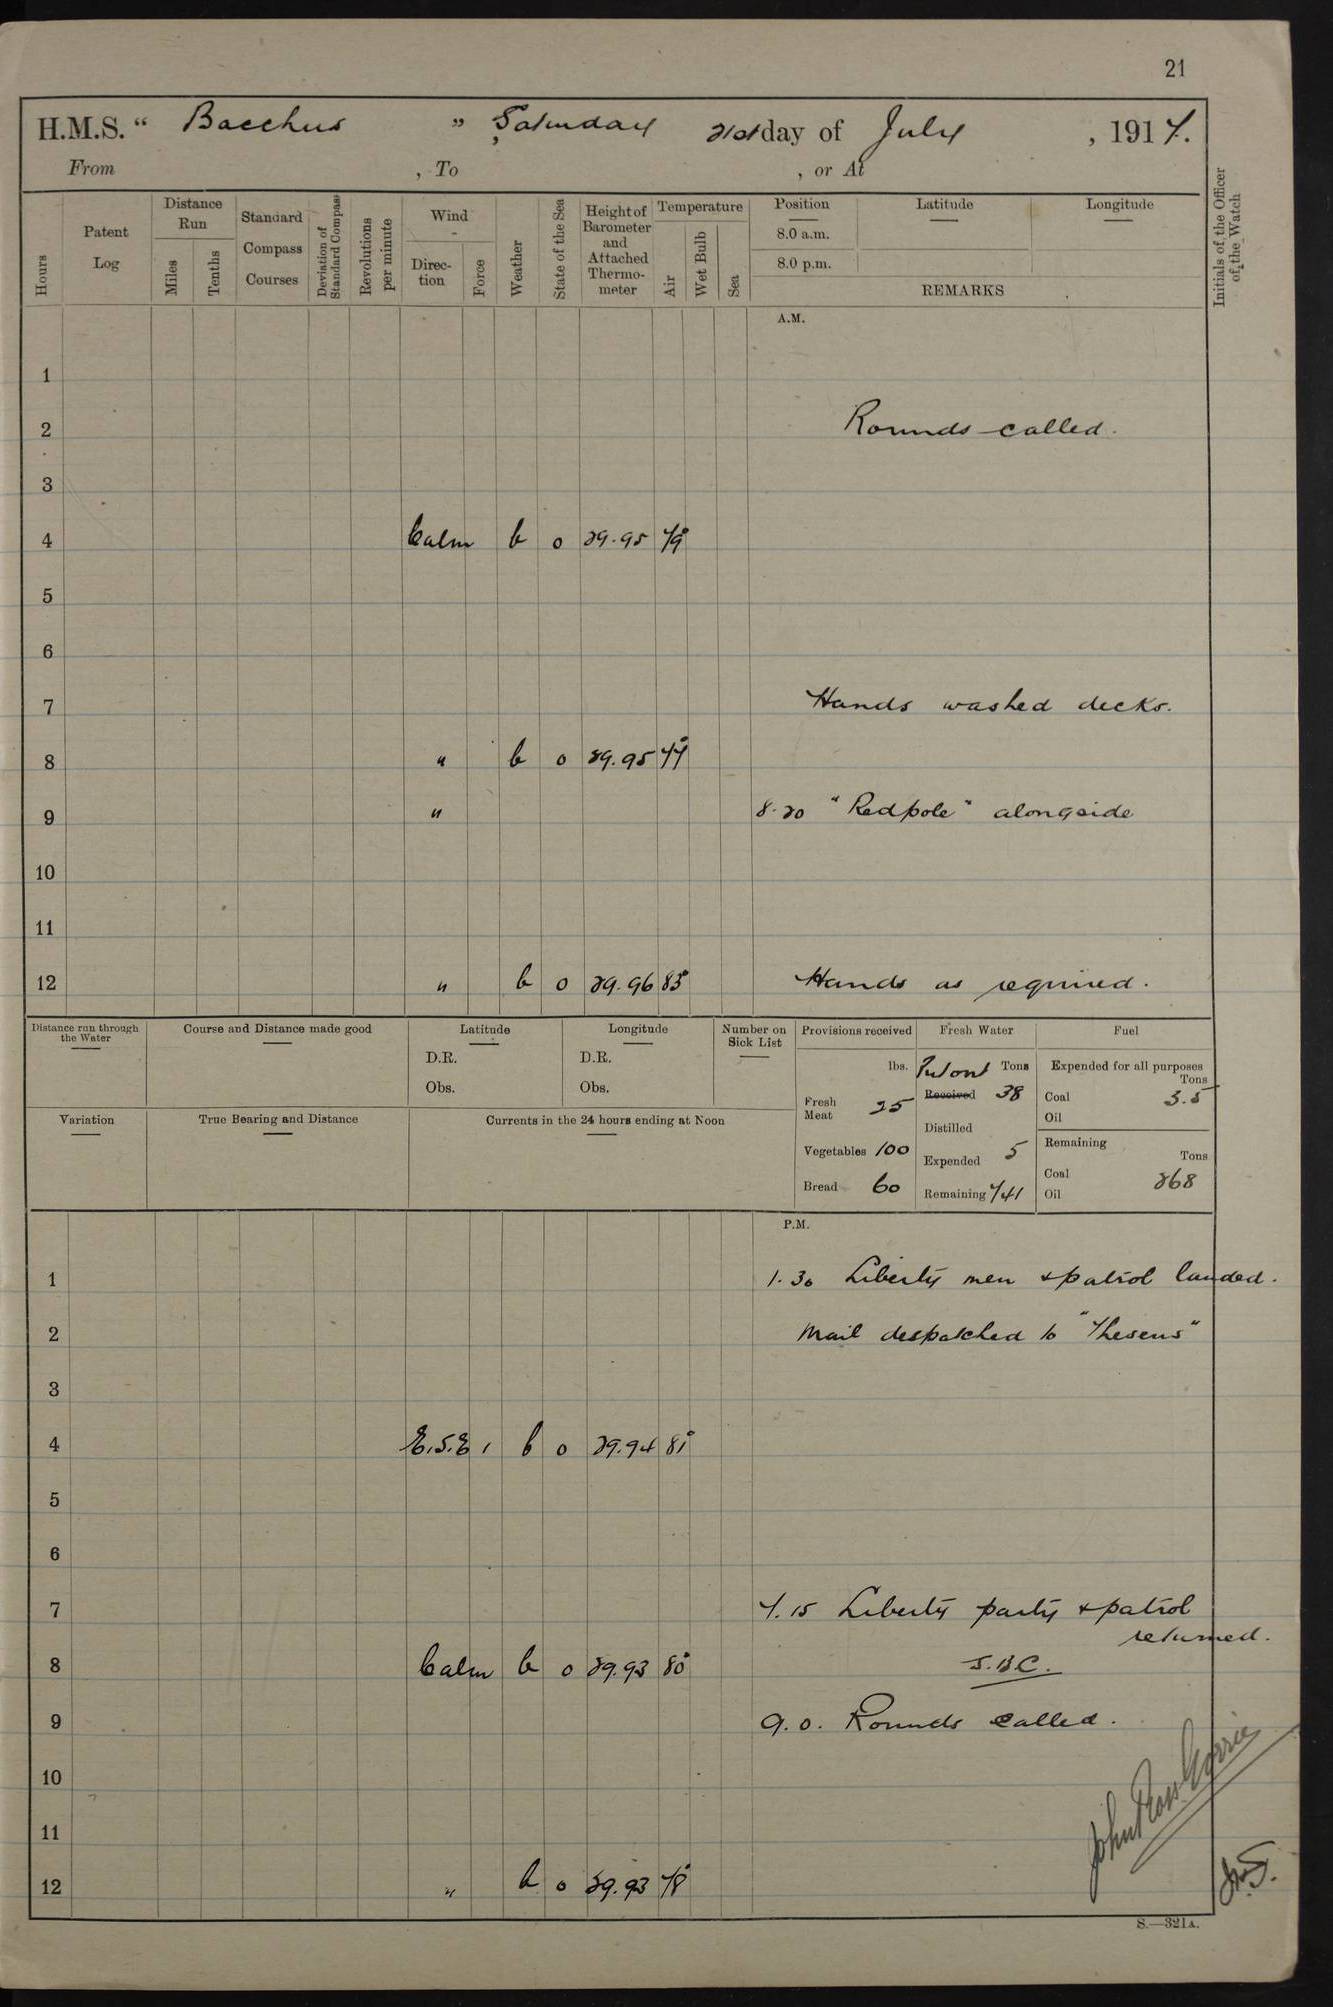 21
H.M.S. " Bacchus " , Saturday 21st day of July , 1917.
From , To , or At
Hours
Patent Log
Distance Run
Miles
Tenths
Standard Compass Courses
Deviation of Standard Compass
Revolutions per minute
Wind
Direction
Force
Weather
State of the Sea
Height of Barometer and Attached Thermometer
Temperature
Air
Wet Bulb
Sea
Position
8.0 a.m.
8.0 p.m.
Latitude
Longitude
REMARKS
Initials of the Officer of the Watch
A.M.
1
2 Rounds called.
3
4 Calm b o 29.95 79°
5
6
7 Hands washed decks.
8 " b o 29.95 77°
9 " 8.20 "Redpole" alongside
10
11
12 " b o 29.96 83° Hands as required.
Distance run through the Water
Course and Distance made good
Latitude
D.R.
Obs.
Longitude
D.R.
Obs.
Number on Sick List
Provisions received
lbs.
Fresh Meat 25
Vegetables 100
Bread 60
Fresh Water
Tons
Received 38
Distilled
Expended 5
Remaining 741
Fuel
Expended for all purposes
Tons
Coal 3.5
Oil
Remaining
Tons
Coal 268
Oil
Variation
True Bearing and Distance
Currents in the 24 hours ending at Noon
P.M.
1 1.30 Liberty men & patrol landed.
2 Mail despatched to "Theseus"
3
4 E.S.E 1 b o 29.94 81°
5
6
7 7.15 Liberty party & patrol
returned.
8 Calm b o 29.93 80° J.B.C.
9 9.0. Rounds called.
10
11
12 " b o 29.93 78°
John Ross Gorrie
S.—321A.